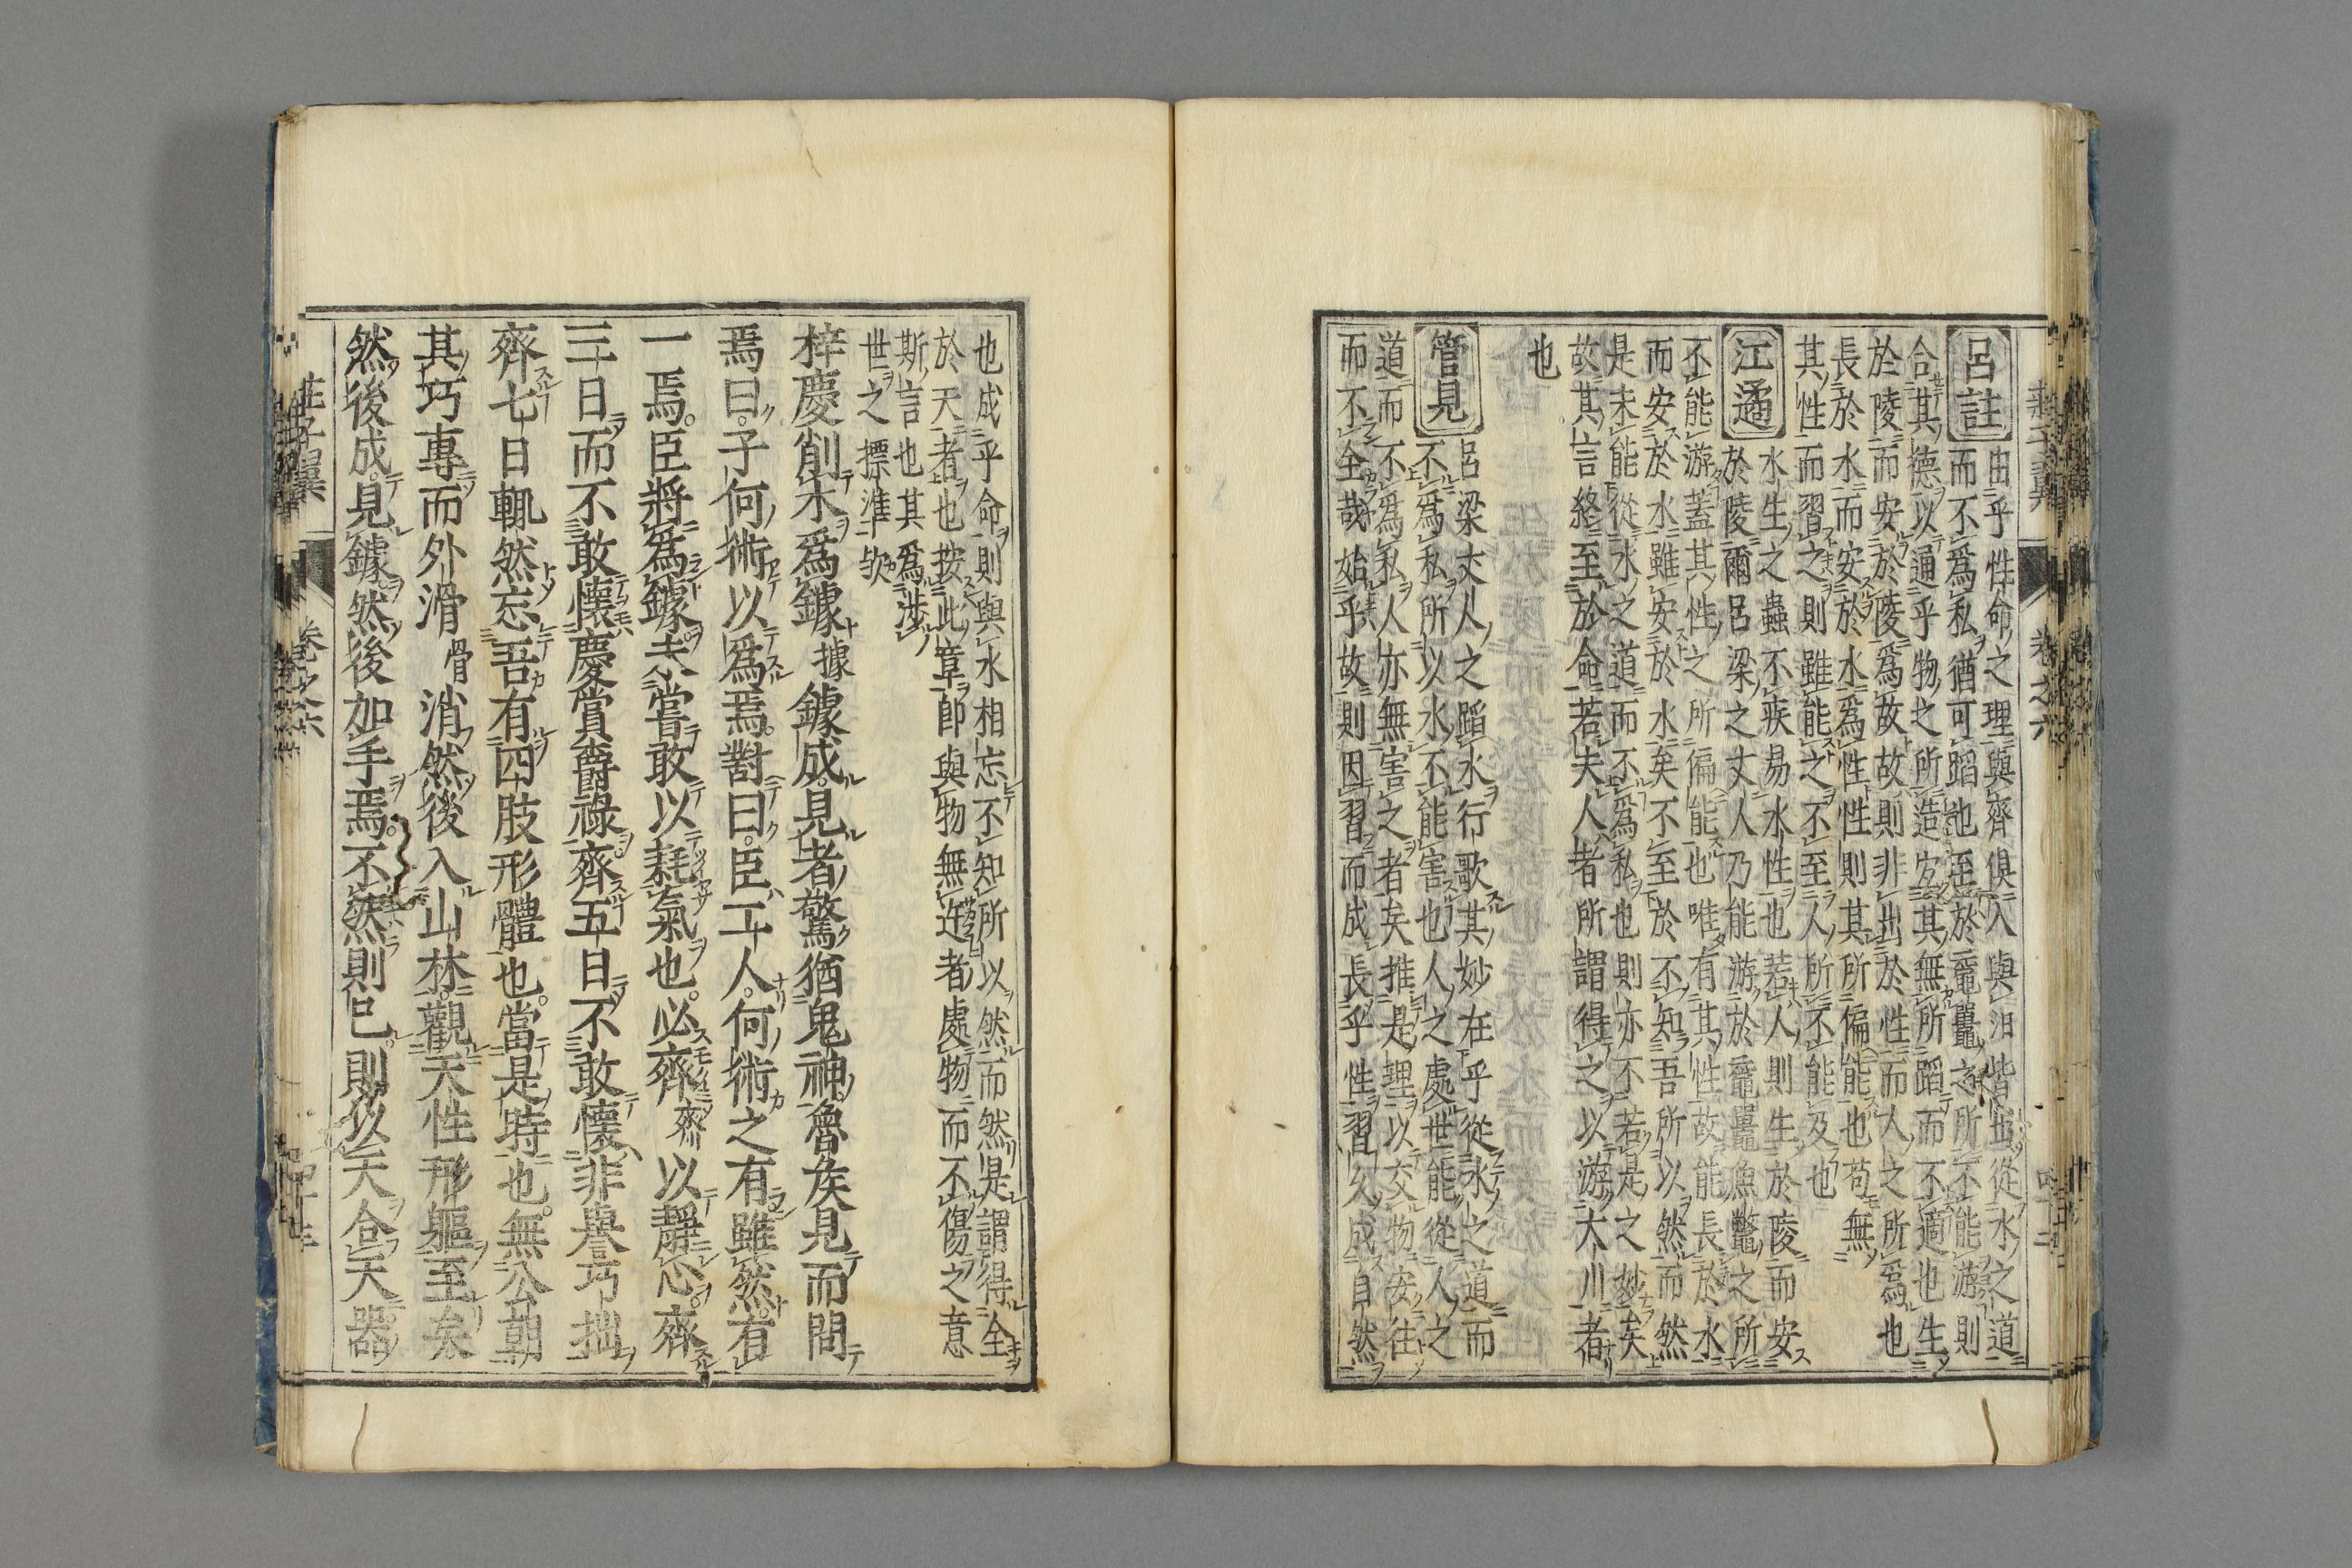 莊子翼 卷之六 四十二
呂註 由乎性命之理與齊俱入與汩皆出從水之道
而不爲私猶可蹈也至於黿鼉之所不能游則
合其德以通乎物之所造宜其無所蹈而不適也生
於陵而安於陵爲故故則非出於性而人之所爲也
長於水而安於水爲性性則其所偏能也苟無
其性而習之則雖能之不至人所不能及也
江遹 水生之蟲不疾易水性也若人則生於陵而安
於陵爾呂梁之丈人乃能游於黿鼉魚鼈之所
不能游蓋其性之所偏能也唯有其性故能長於水
而安於水雖安於水矣不至於不知吾所以然而然
是未能從水之道而不爲私也則亦不若是之妙矣
故其言終至於命若夫人者所謂得之以游大川者
也
管見 呂梁丈人之蹈水行歌其妙在乎從水之道而
不爲私所以水不能害也人之處世能從人之
道而不爲私人亦無害之者矣推是理以交物安往
而不全哉始乎故則因習而成長乎性習久成自然
也成乎命則與水相忘不知所以然而然是謂得全
於天者也按此章卽與物無迕者處物而不傷之意
斯言也其爲涉
世之摽準歟
梓慶削木爲鐻據鐻成見者驚猶鬼神魯矦見而問
焉曰子何術以爲焉對曰臣工人何術之有雖然有
一焉臣將爲鐻未嘗敢以耗氣也必齊齋以靜心齊
三日而不敢懷慶賞爵祿齊五日不敢懷非譽巧拙
齊七日輒然忘吾有四肢形體也當是時也無公朝
其巧專而外滑骨消然後入山林觀天性形軀至矣
然後成見鐻然後加手焉不然則已則以天合天器
莊子翼 卷之六